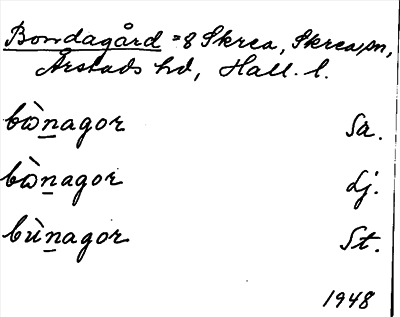 Bondagård =8 Skrea, Skrea sn,
Årstads hd, Hall. l.
bɷ̀nagor Sa.
bɷ̀nagor Lj.
bùnagor St.
1948